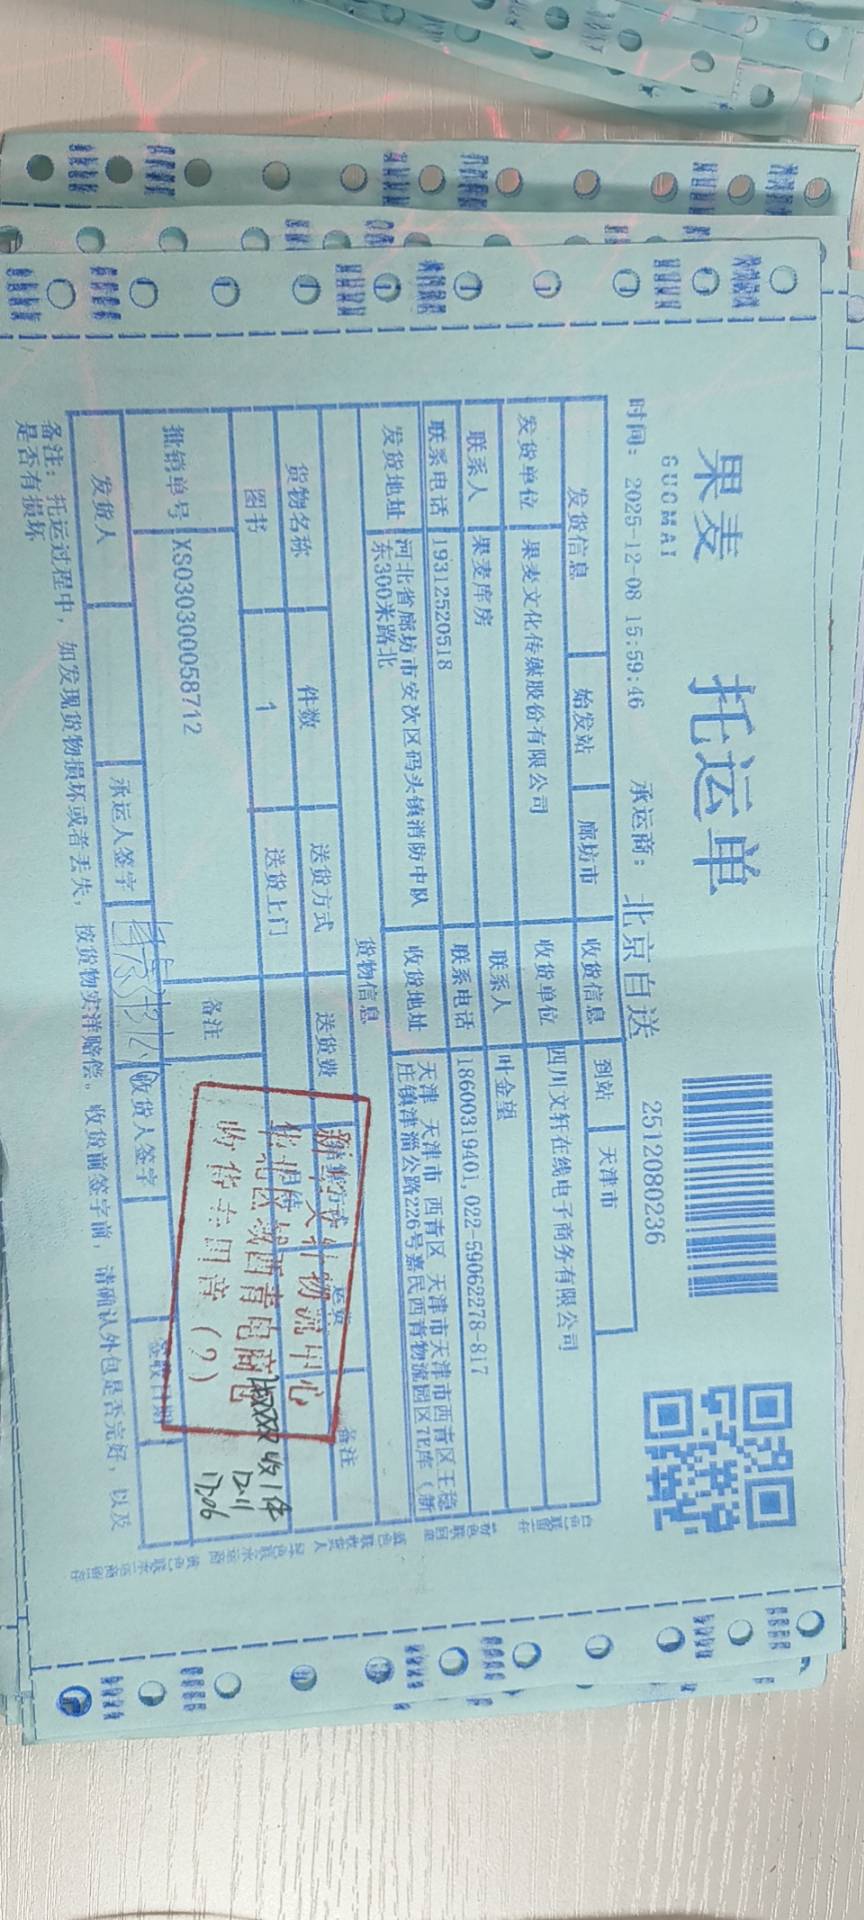 果麦 托运单
GUOMAI
2512080236
时间: 2025-12-08 15:59:46 承运商: 北京自送
发货信息 始发站 廊坊市 收货信息 到站 天津市
发货单位 果麦文化传媒股份有限公司 收货单位 四川文轩在线电子商务有限公司
联系人 果麦库房 联系人 叶金望
联系电话 19312520518 联系电话 18600319401,022-59062278-817
发货地址 河北省廊坊市安次区码头镇消防中队东300米路北 收货地址 天津 天津市 西青区 天津市天津市西青区王稳庄镇津淄公路226号嘉民西青物流园区7E库（新
货物信息
货物名称 件数 送货方式 送货费 运费 备注
图书 1 送货上门
批销单号 XS030300058712 备注
发货人 承运人签字 收货人签字 签收日期
备注: 托运过程中, 如发现货物损坏或者丢失, 按货物实洋赔偿。收货前签字前, 请确认外包是否完好, 以及
是否有损坏
新华文轩物流中心
华北区域西青电商仓
收货专用章(2)
收1件
12.11
17:06